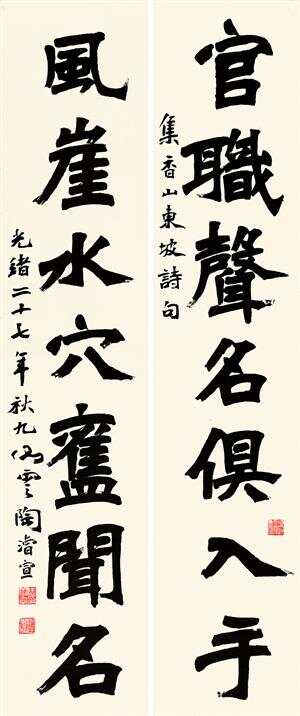 官職聲名俱入手
集香山東坡詩句
風崖水穴舊聞名
光緒二十七年秋九云陶濬宣